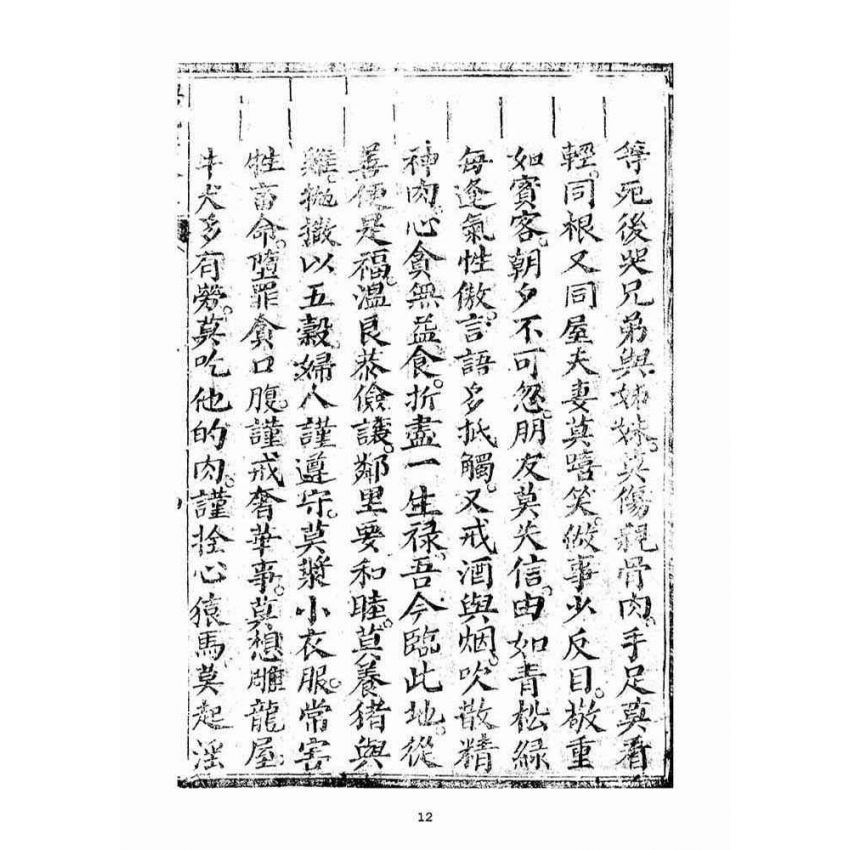 等死後哭兄弟與姊妹。莫傷親骨肉手足莫看
輕。同根又同屋夫妻莫嘻笑。做事少反目。敬重
如賓客。朝夕不可忽。朋友莫失信。由如青松綠
每逢氣性傲。言語多抵觸。又戒酒與烟。吹散精
神肉。心貪無益食。折盡一生祿。吾今臨此地。從
善便是福。溫良恭儉讓。鄰里要和睦。莫養猪與
雞。拋撒以五穀。婦人謹遵守。莫漿小衣服。常害
牲畜命。墮罪貪口腹。謹戒奢華事。莫想雕龍屋。
牛犬多有勞。莫吃他的肉。謹拴心猿馬。莫起淫
12